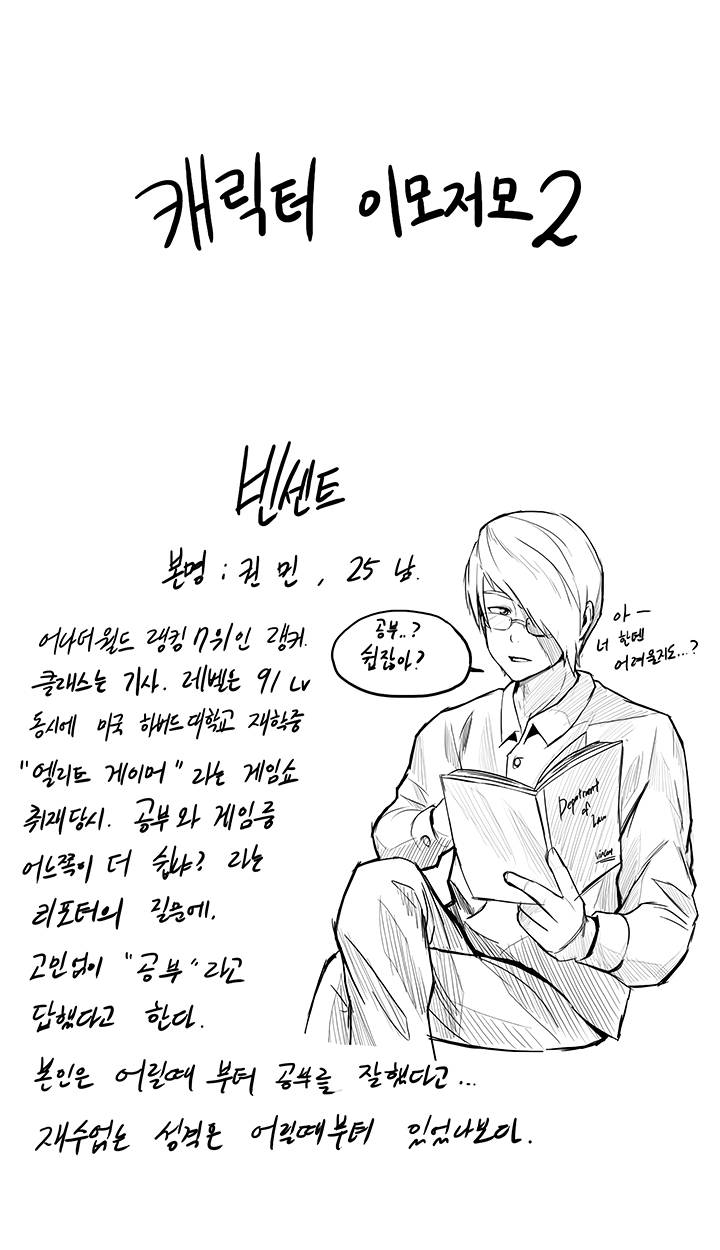 캐릭터 이모저모2
빈센트
본명 : 권민, 25 남.
어나더월드 랭킹 7위인 랭커.
클래스는 기사. 레벨은 91 Lv
동시에 미국 하버드대학교 재학중
"엘리트 게이머" 라는 게임쇼
취재당시. 공부와 게임중
어느쪽이 더 쉽냐? 라는
리포터의 질문에.
고민없이 "공부"라고
답했다고 한다.
본인은 어릴때 부터 공부를 잘했다고...
재수없는 성격은 어릴때부터 있었나보다.
공부..?
쉽잖아?
아-
너 한텐
어려울지도...?
Department
of
Law